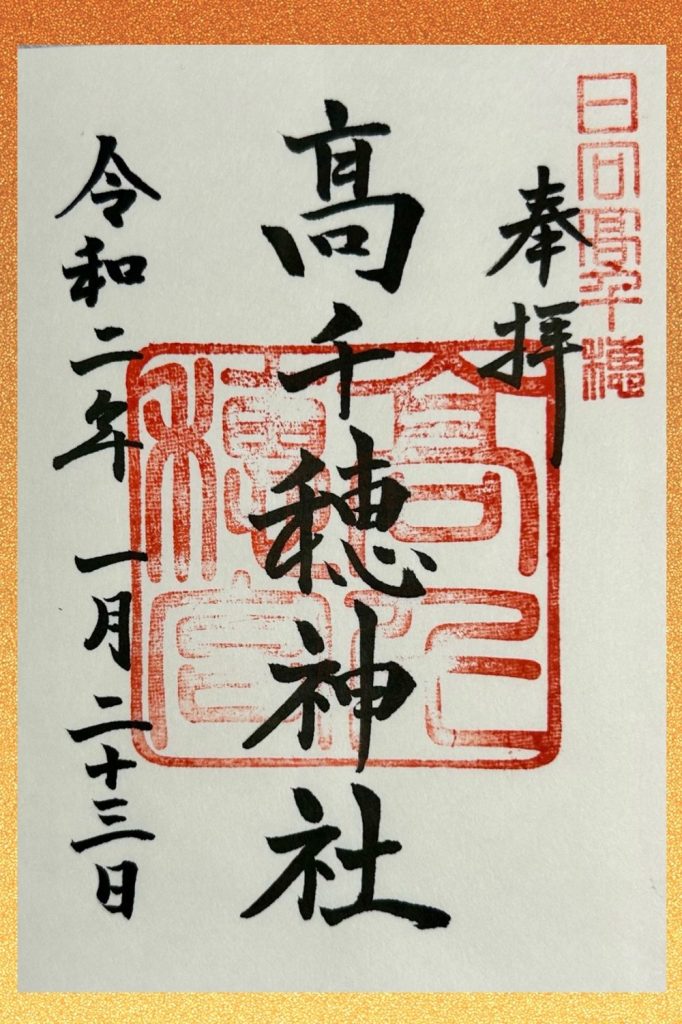 日向高千穂
奉拝
高千穂神社
令和二年 一月 二十三日